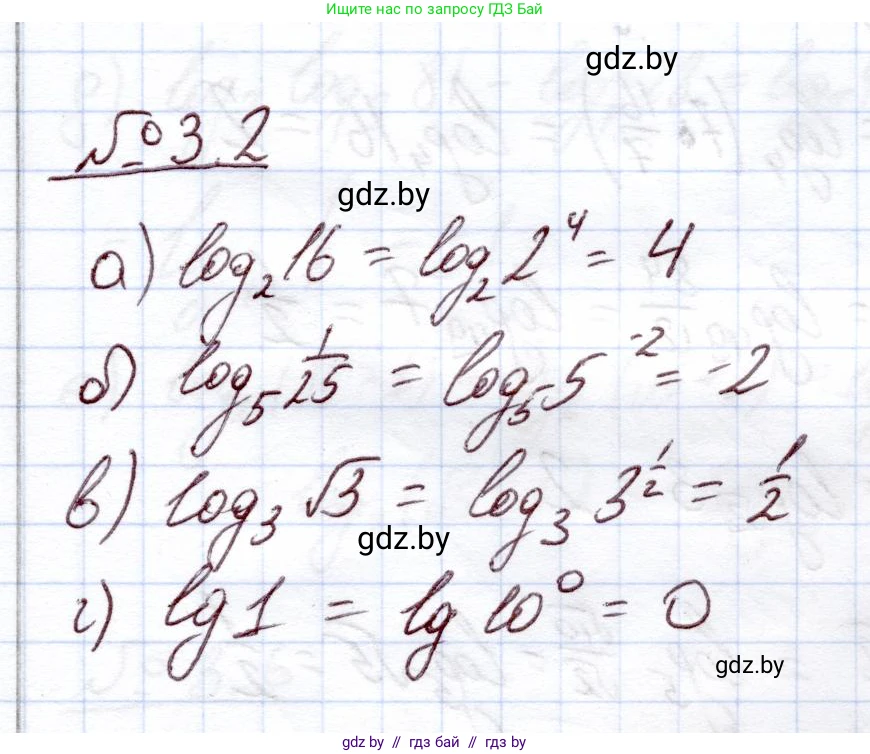 Ищите нас по запросу ГДЗ Бай
gdz.by
№ 3.2
gdz.by
а) log₂16 = log₂2⁴ = 4
б) log₅ 1/25 = log₅5⁻² = -2
в) log₃ √3 = log₃ 3^(1/2) = 1/2
gdz.by
г) lg 1 = lg 10⁰ = 0
gdz.by
gdz.by // гдз бай // гдз by